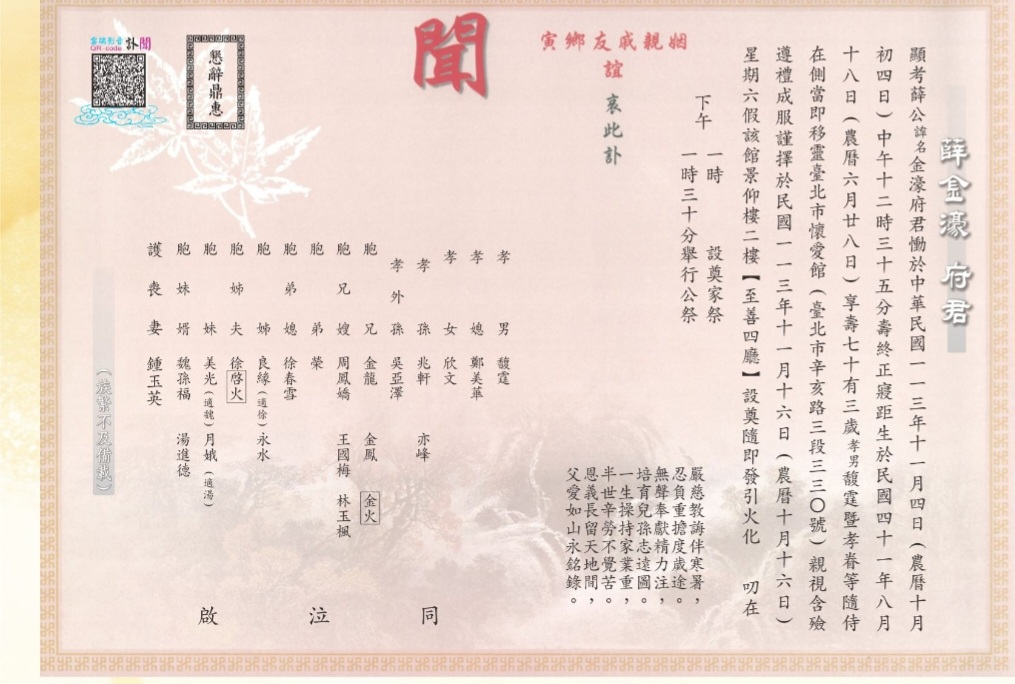 薛金濠 府君
顯考薛公諱名金濠府君慟於中華民國一一三年十一月四日(農曆十月
初四日)中午十二時三十五分壽終正寢距生於民國四十一年八月
十八日(農曆六月廿八日)享壽七十有三歲孝男馥霆暨孝眷等隨侍
在側當即移靈臺北市懷愛館(臺北市辛亥路三段三三〇號)親視含殮
遵禮成服謹擇於民國一一三年十一月十六日(農曆十月十六日)
星期六假該館景仰樓二樓【至善四廳】設奠隨即發引火化 叨在
下午 一時 設奠家祭
一時三十分舉行公祭
寅鄉友戚親姻
誼
哀此訃
聞
嚴慈教誨伴寒暑,
忍負重擔度歲途。
無聲奉獻精力注,
培育兒孫志遠圖。
一生操持家業重,
半世辛勞不覺苦。
恩義長留天地間,
父愛如山永銘錄。
孝男 馥霆
孝媳 鄭美華
孝女 欣文
孝孫 兆軒 亦峰
孝外孫 吳亞澤
胞兄 金龍 金鳳 金火
胞兄嫂 周鳳嬌 王國梅 林玉楓
胞弟 榮
胞弟媳 徐春雪
胞姊 良緣(適徐) 永水
胞姊夫 徐啓火
胞妹 美光(適魏) 月娥(適湯)
胞妹婿 魏孫福 湯進德
護喪妻 鍾玉英
同 泣 啟
(族繁不及備載)
懇辭鼎惠
雲端影音
QR-code
訃聞